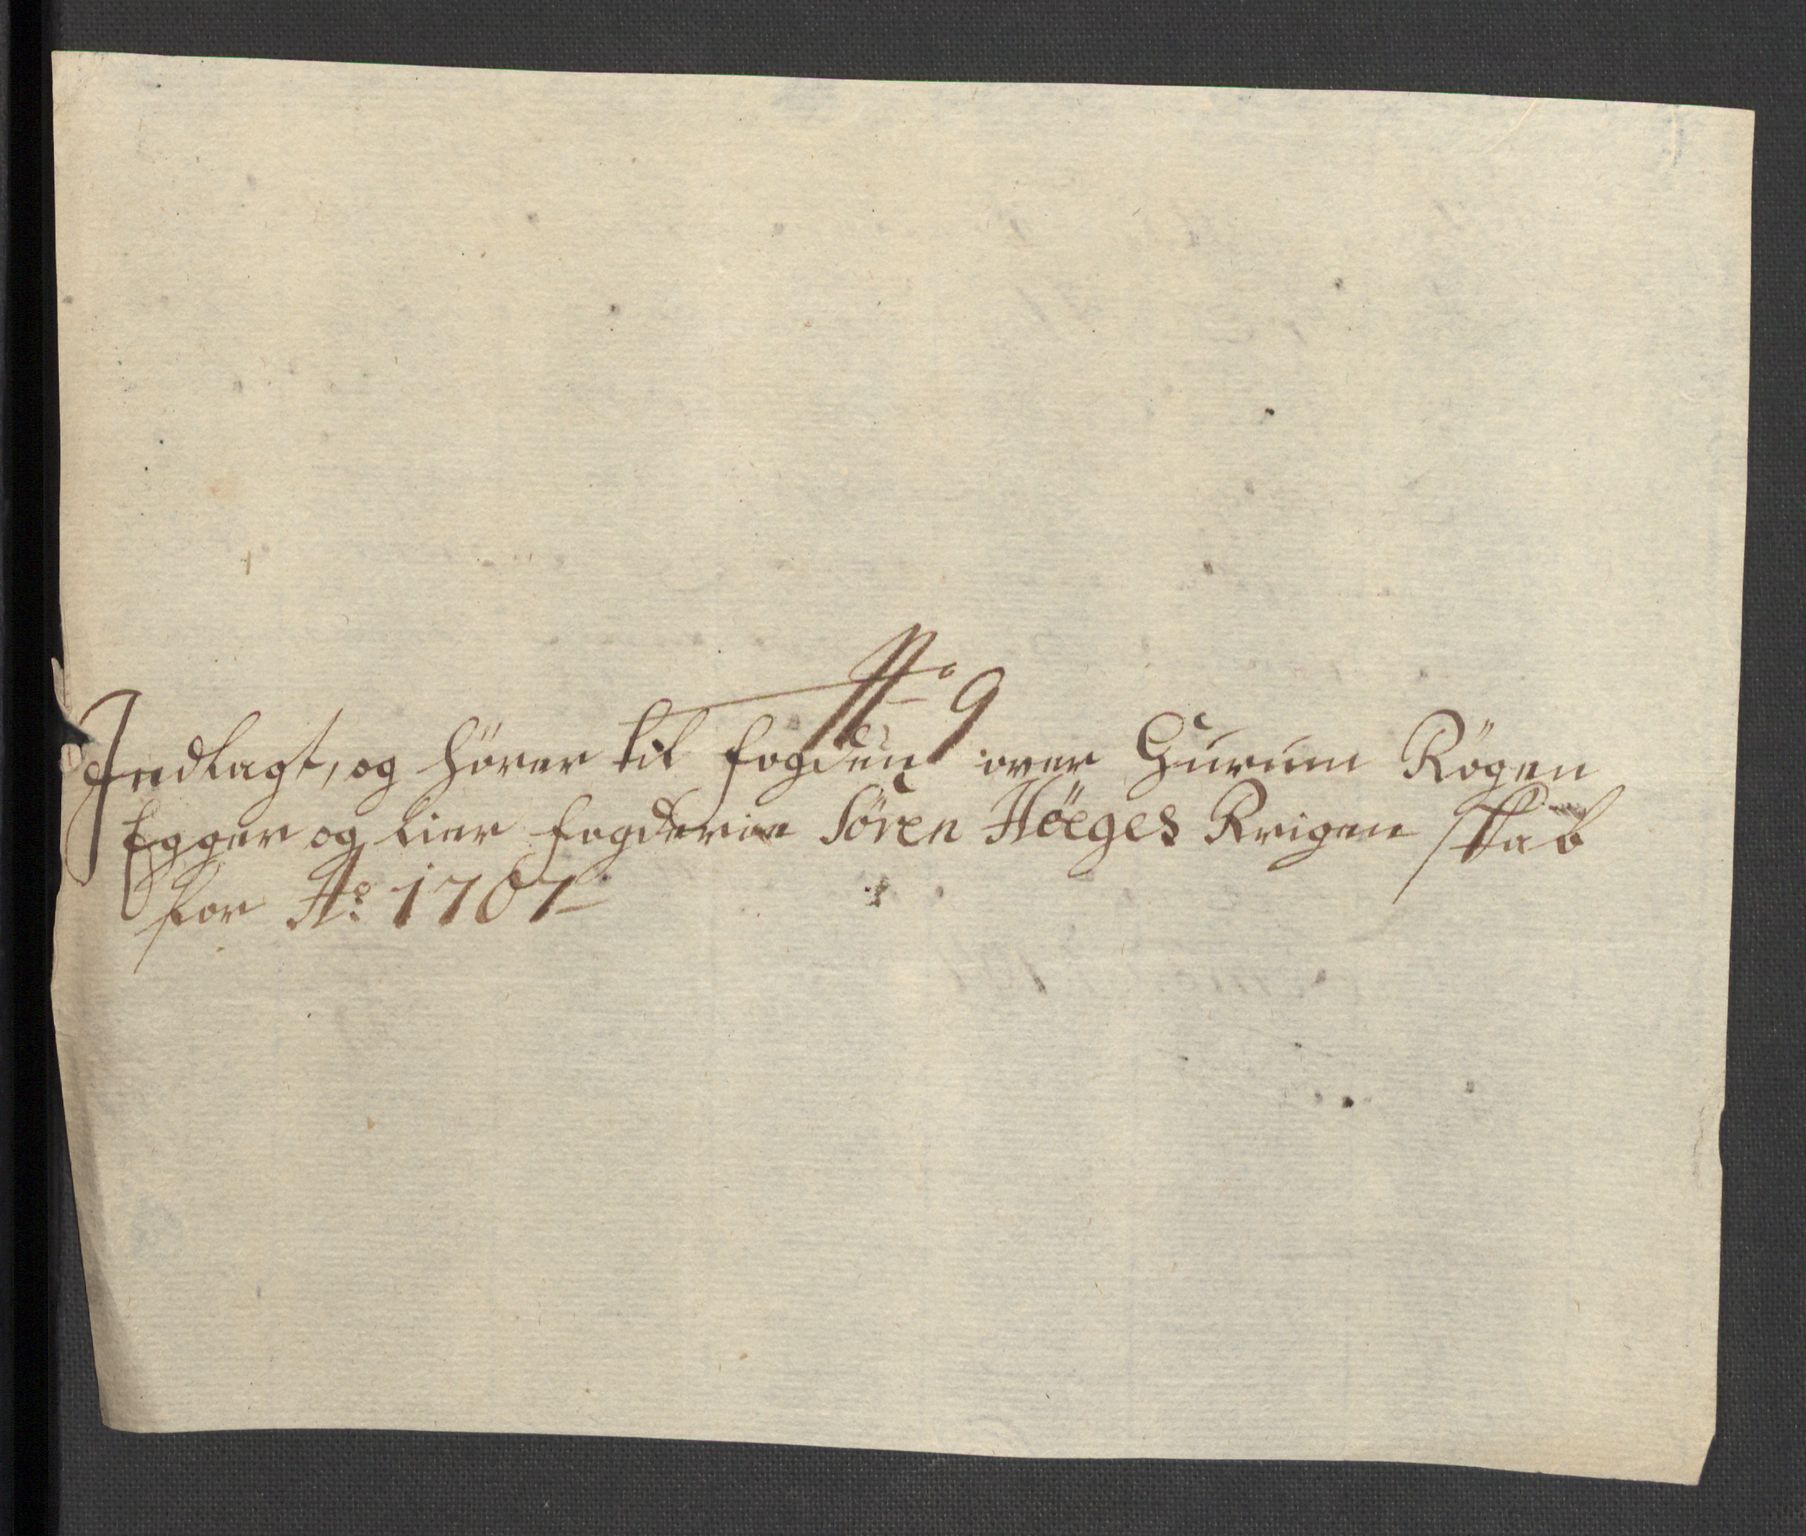 No 9
Indlagt, og hörer til fogden over Huruum Rögen
Egger og Lier fogderie Sören Höeges Regen skab
for Ao: 1707